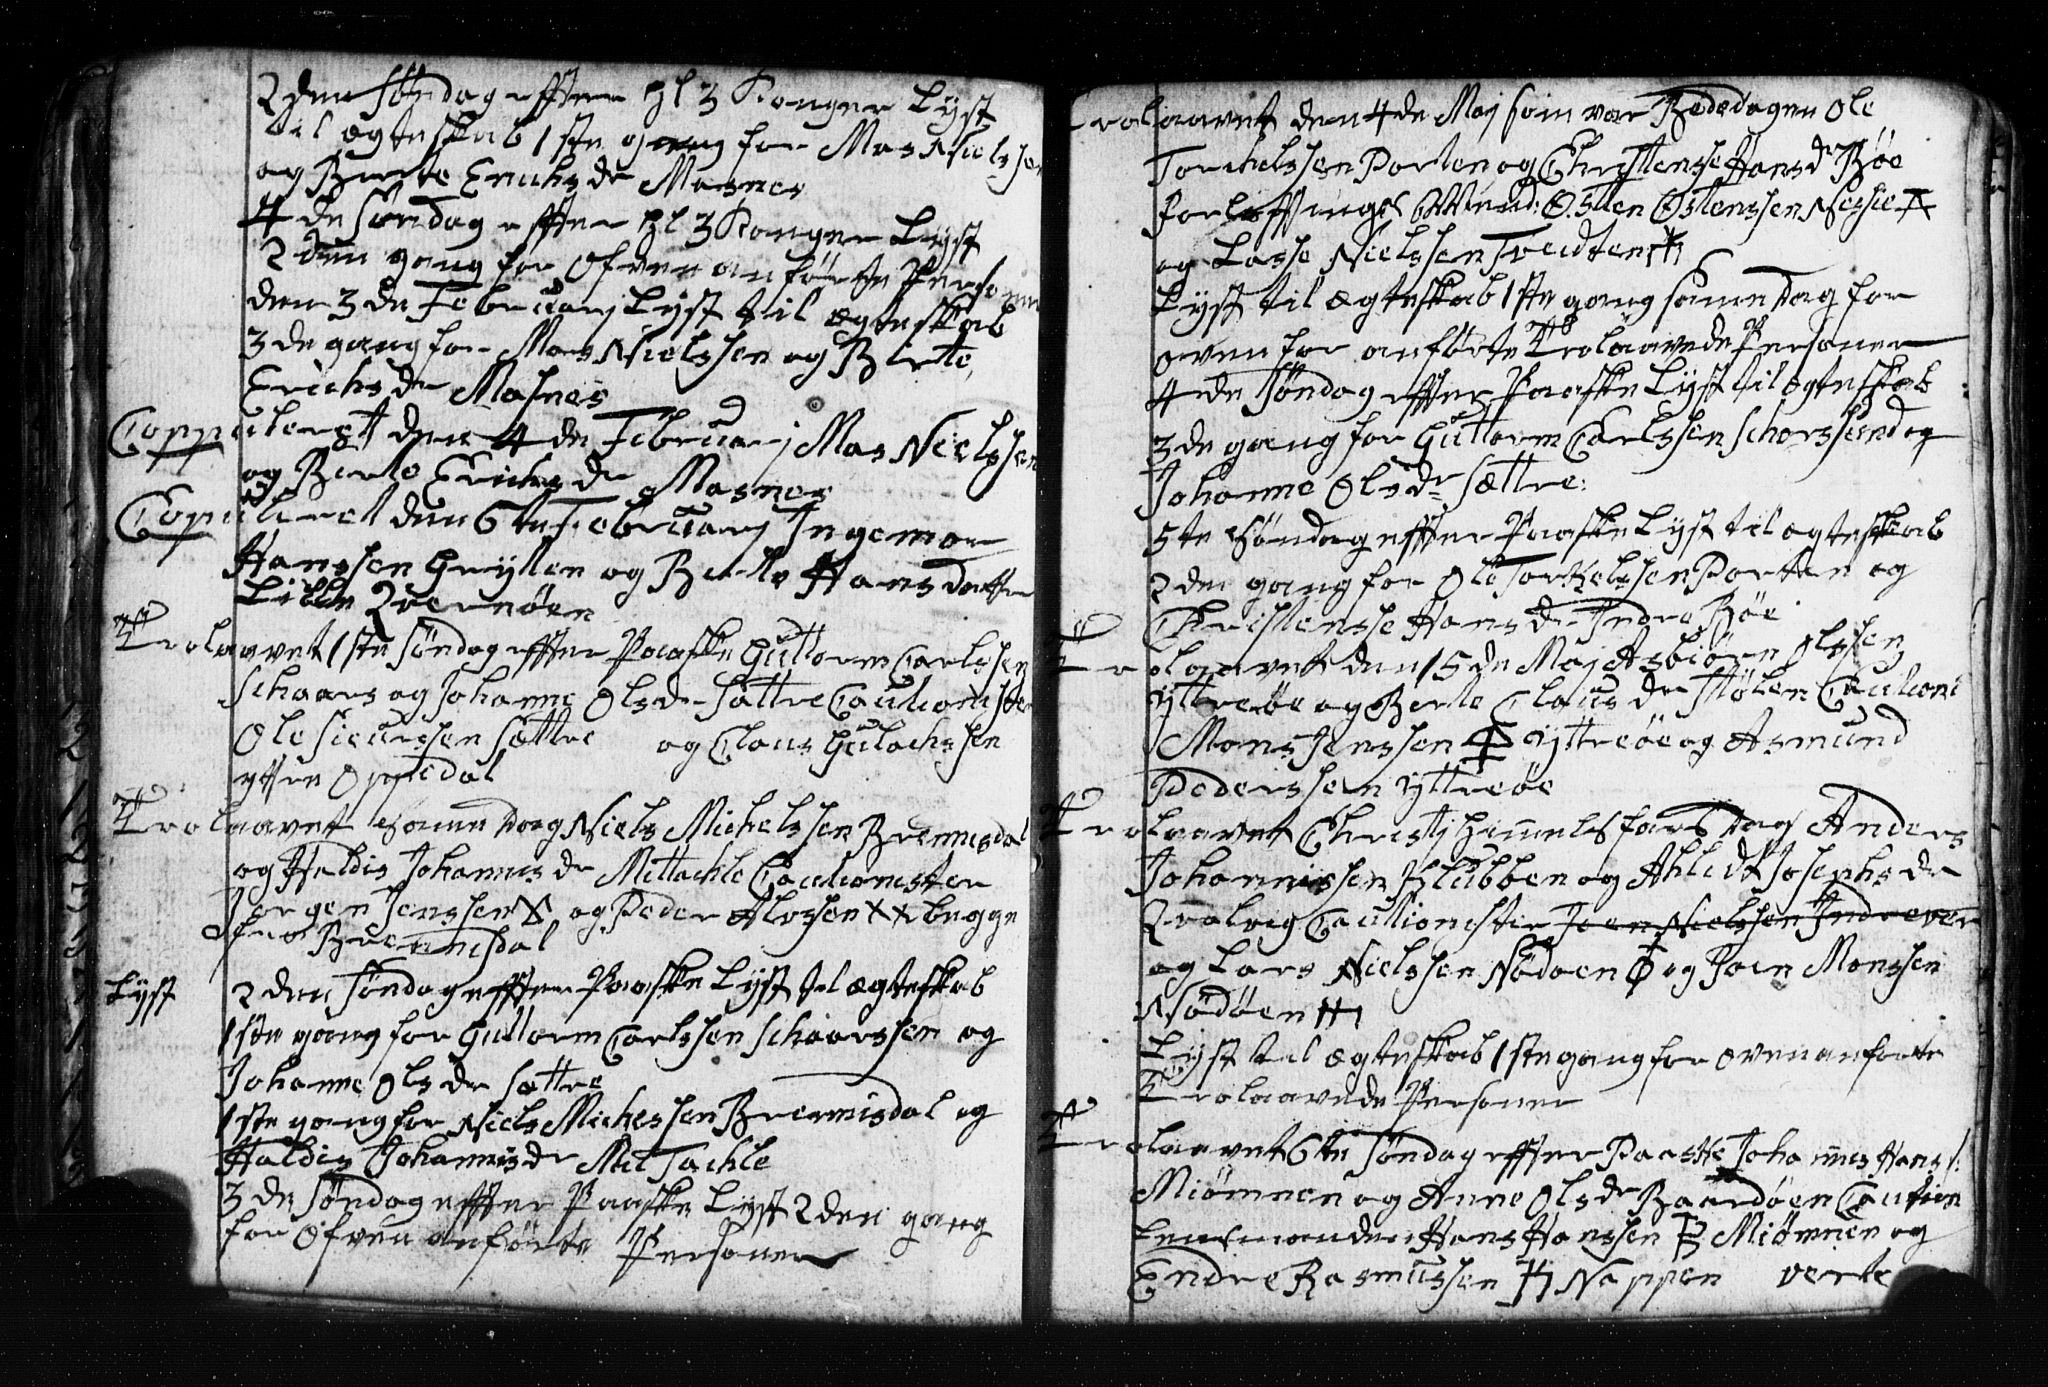 2den Søndag effter hl 3 Konger Lyst
til ægteskab 1ste gang for Mas Nielssen
og Berte Erichsdr Masnes
4de Søndag effter hl 3 Konger Lyst
2den gang for Ofven anførte Personer
den 3de Februarj Lyst til ægteskab
3de gang for Mas Nielssen og Birte
Erichsdr Masnes
Coppuleret den 4de Februarj Mas Nielssen
og Berte Erichsdr Masnes
Copuleret den 6te Februarj Ingemor
Hanssen Gryllen og Berte Hansdatter
Lille Qvernøen
Trolaavet 1ste Søndag effter Paaske Guttorm Carlssen
Schaars og Johanne Olsdr Sættre Cautionister
Ole Siurssen Sættre og Claus Gulachssen
yttre Oppedal
Trolaavet samme Dag Niels Michelssen Bremisdal
og Haldis Johannisdr Mittachle Cautionister
Jørgen Jenssen og Peder Alossen xx begge
fra Bremmisdal
Lyst 2den Søndag effter Paaske Lyst til ægteskab
1ste gang for Guttorm Carlssen Schaarssen og
Johanne Olsdr Sættre
1ste gang for Niels Michessen Bremisdal og
Haldis Johannisdr Mit Tachle
3de Søndag effter Paaske Lyst 2den gang
for Ofven anførte Personer
Trolaavet den 4de Maj som var Bededagen Ole
Torchelssen Porten og Christensse Hansdr Bøe
Forløffings Østen Østenssen
og Lasse Nielssen Tveidten
Lyst til ægteskab 1ste gang samme Dag for
oven for anførte Trolaavede Personer
4de Søndag effter Paaske Lyst til ægteskab
3de gang for Guttorm Carlssen og
Johanne Olsdr Sættre.
5te Søndag effter Paaske Lyst til ægteskab
2den gang for Ole Torkelssen Porten og
Christensse Hansdr Indre Bøe
Trolaavet den 15de Maj Asbiørn Olssen
yttreøe og Berte Clausdr Stølen Cautioni
Mons Jenssen yttreøe og Asmund
Pederssen yttreøe
Trolaavet Christj Himmelsfars Dag Anders
Johannissen Klubben og Ahlidt Josephsdr
Qvalvig Cautionister Joen Nielssen Indrevær
og Lars Nielssen Nødøen og Joen Monssen
Nødøen
Lyst til ægteskab 1ste gang for oven anførte
Trolaavede Personer
Trolaavet 6te Søndag effter Paaske Johannes Hanss:
Miømnen og Anne Olsdr Baardøen Caution
Lensmanden Hans Hanssen Miømnen og
Endre Rasmussen Nappen verte